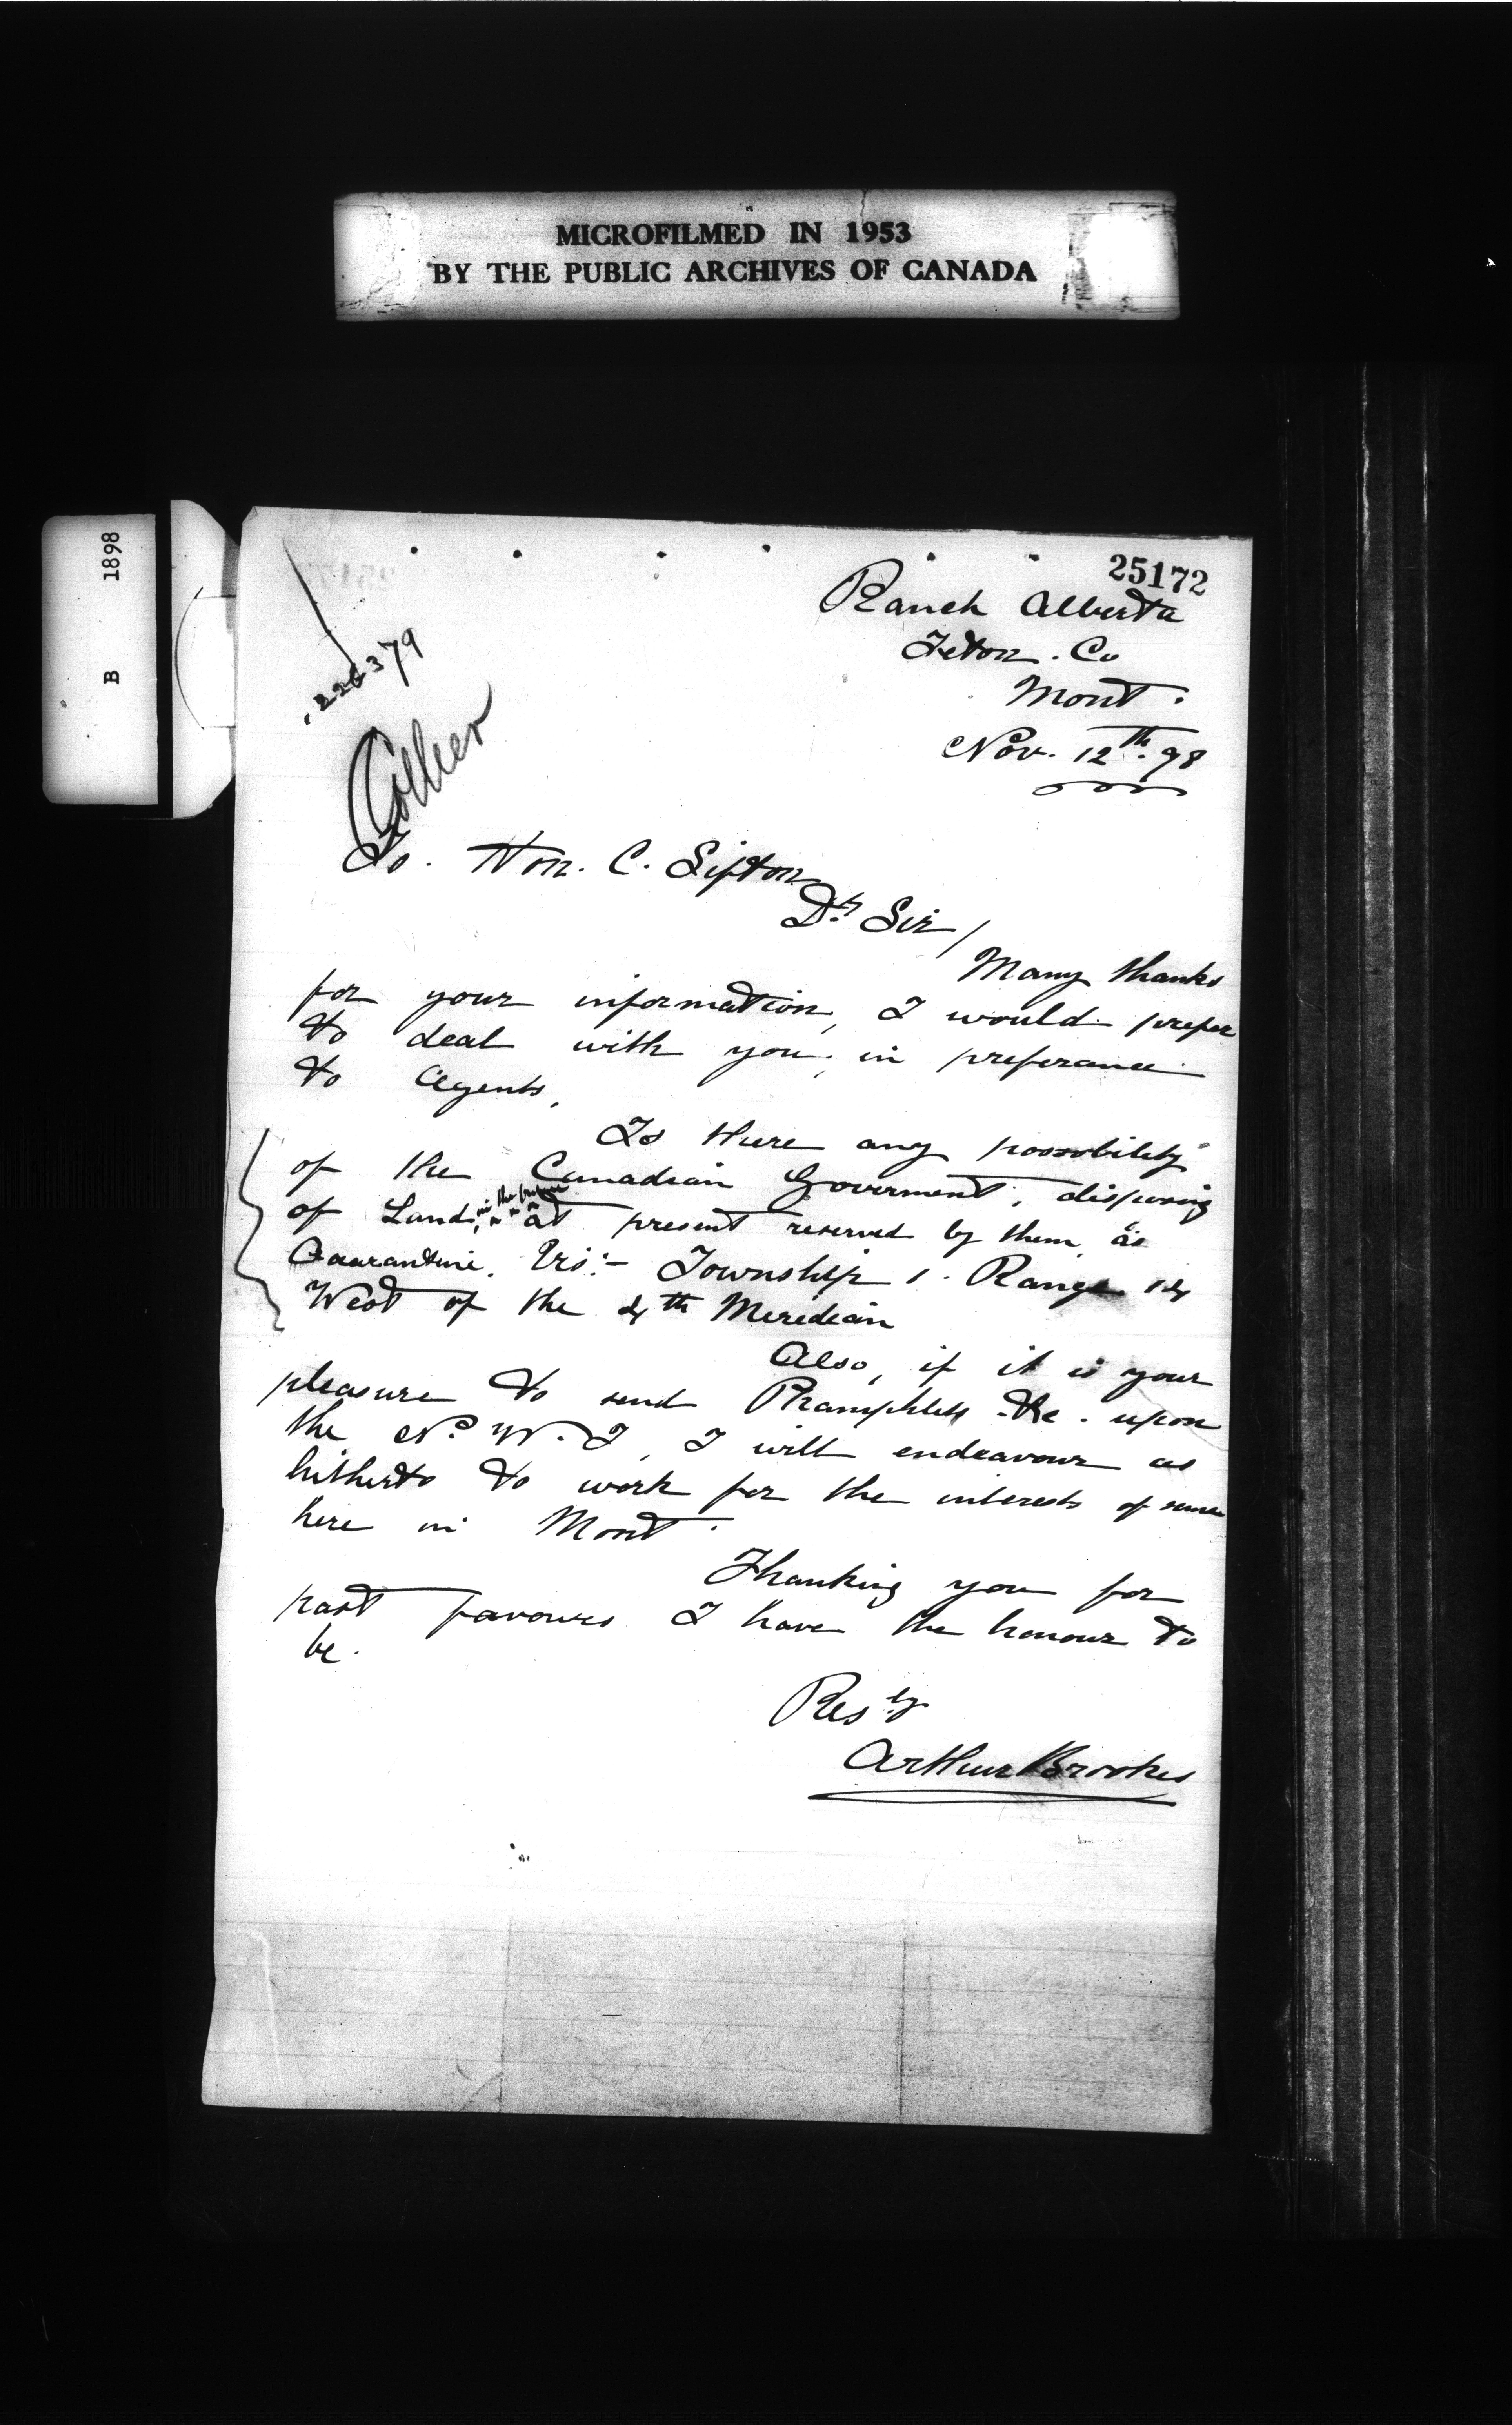 MICROFILMED IN 1953
BY THE PUBLIC ARCHIVES OF CANADA
B 1898
25172
Ranch Alberta
Teton. Co
Mont.
Nov. 12th. 98
Collier
To. Hon. C. Sifton
Dr Sir /
Many thanks
for your information, I would prefer
to deal with you, in preferance
to Agents.
Is there any possobility
of the Canadian Goverment, disposing
in the future
of Land, at present reserved by them as
Quarantine. Vis:- Township 1. Range 14
West of the 4th Meredian
Also, if it is your
pleasure to send Phamphlets &c. upon
the N. W. T, I will endeavour as
hitherto to work for the interests of same
here in Mont.
Thanking you for
past favours I have the honour to
be.
Resly
Arthur Brookes